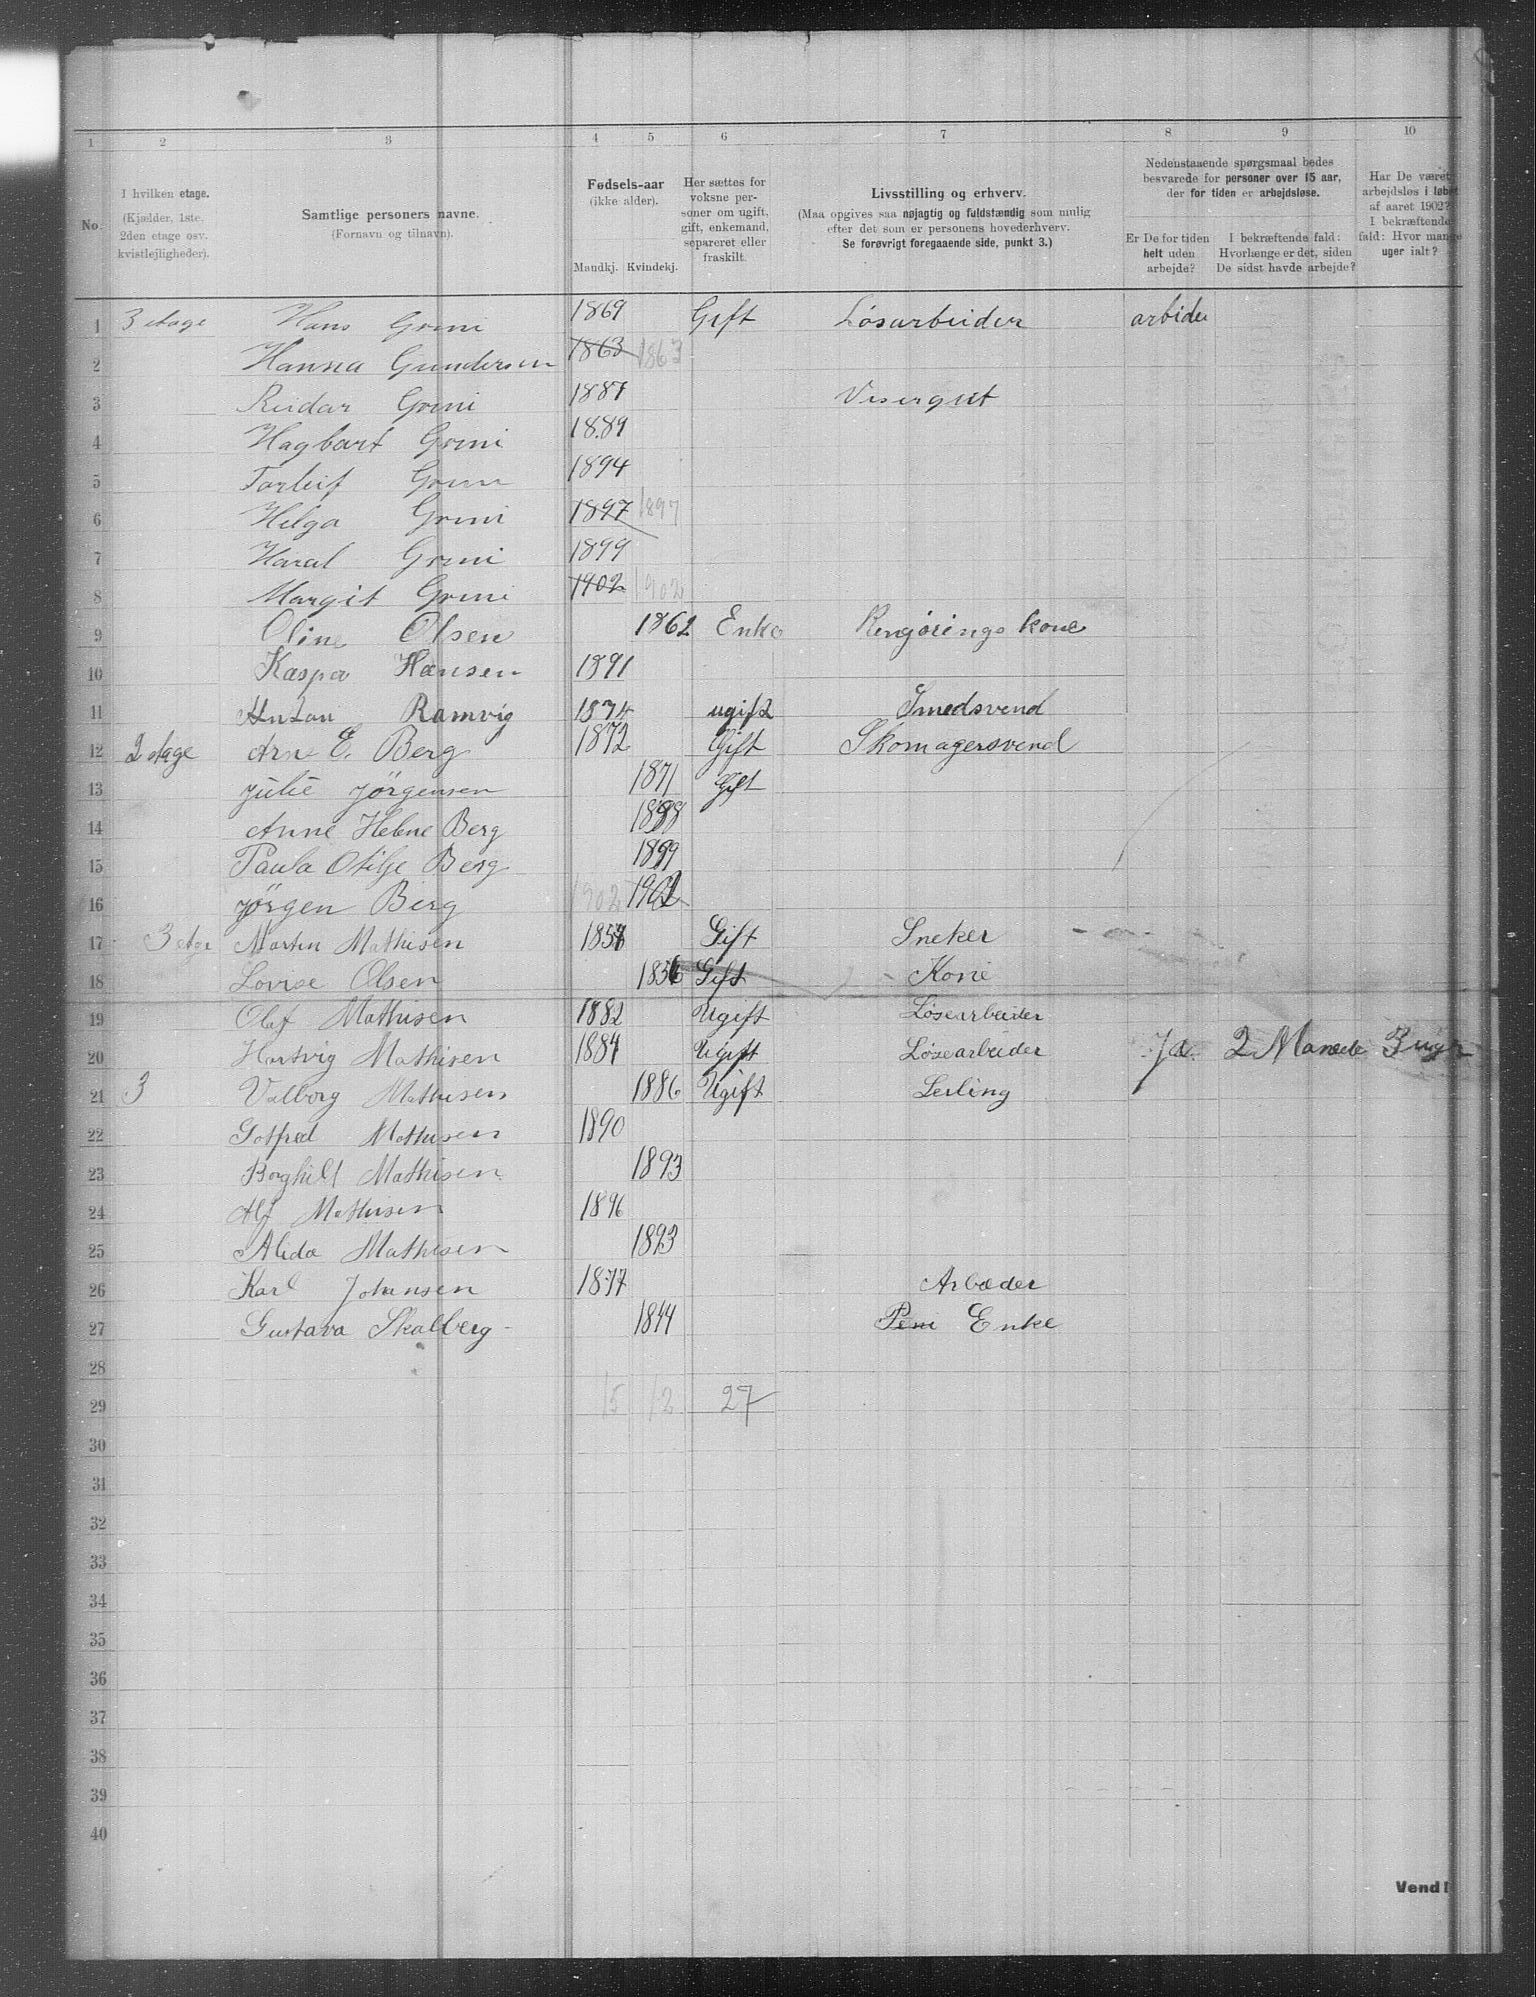 1 2 3 4 5 6 7 8 9 10
No.
I hvilken etage.
(Kjælder, 1ste,
2den etage osv.
kvistlejligheder).
Samtlige personers navne.
(Fornavn og tilnavn).
Fødsels-aar
(ikke alder).
Mandkj. Kvindekj.
Her sættes for
voksne per-
soner om ugift,
gift, enkemand,
separeret eller
fraskilt.
Livsstilling og erhverv.
(Maa opgives saa nøjagtig og fuldstændig som mulig
efter det som er personens hovederhverv.
Se forøvrigt foregaaende side, punkt 3.)
Nedenstaaende spørgsmaal bedes
besvarede for personer over 15 aar,
der for tiden er arbejdsløse.
Er De for tiden
helt uden
arbejde?
I bekræftende fald:
Hvorlænge er det, siden
De sidst havde arbejde?
Har De været
arbejdsløs i løbet
af aaret 1902?
I bekræftende
fald: Hvor mange
uger ialt?
1 3 etage Hans Grini 1869 Gift Løsarbeider arbider
2 Hanna Gundersen 1863 1863
3 Reidar Grini 1887 Visergut
4 Hagbart Grini 1889
5 Torleif Grini 1894
6 Helga Grini 1897 1897
7 Haral Grini 1899
8 Margit Grini 1902 1902
9 Oline Olsen 1862 Enke Rengørings kone
10 Kaspar Hansen 1891
11 Anton Ramvig 1874 ugift Smedsvend
12 2 etage Arne E. Berg 1872 Gift Skomagersvend
13 Julie Jörgensen 1871 Gift
14 Anne Helene Berg 1898
15 Paula Otilje Berg 1899
16 Jörgen Berg 1902 1902
17 3 etage Martin Mathisen 1858 Gift Sneker
18 Lovise Olsen 1856 Gift Kone
19 Olaf Mathisen 1882 Ugift Løsearbeider
20 Hartvig Mathisen 1884 Ugift Løsearbeider Ja. 2 Manede 3 uger
21 3 Valborg Mathisen 1886 Ugift Lerling
22 Gotfred Mathisen 1890
23 Borghild Mathisen 1893
24 Alf Mathisen 1896
25 Alida Mathisen 1893
26 Karl Johansen 1877 Arbæder
27 Gustava Skalberg 1844 Enke
28
29 15 12 27
30
31
32
33
34
35
36
37
38
39
40
Vend!